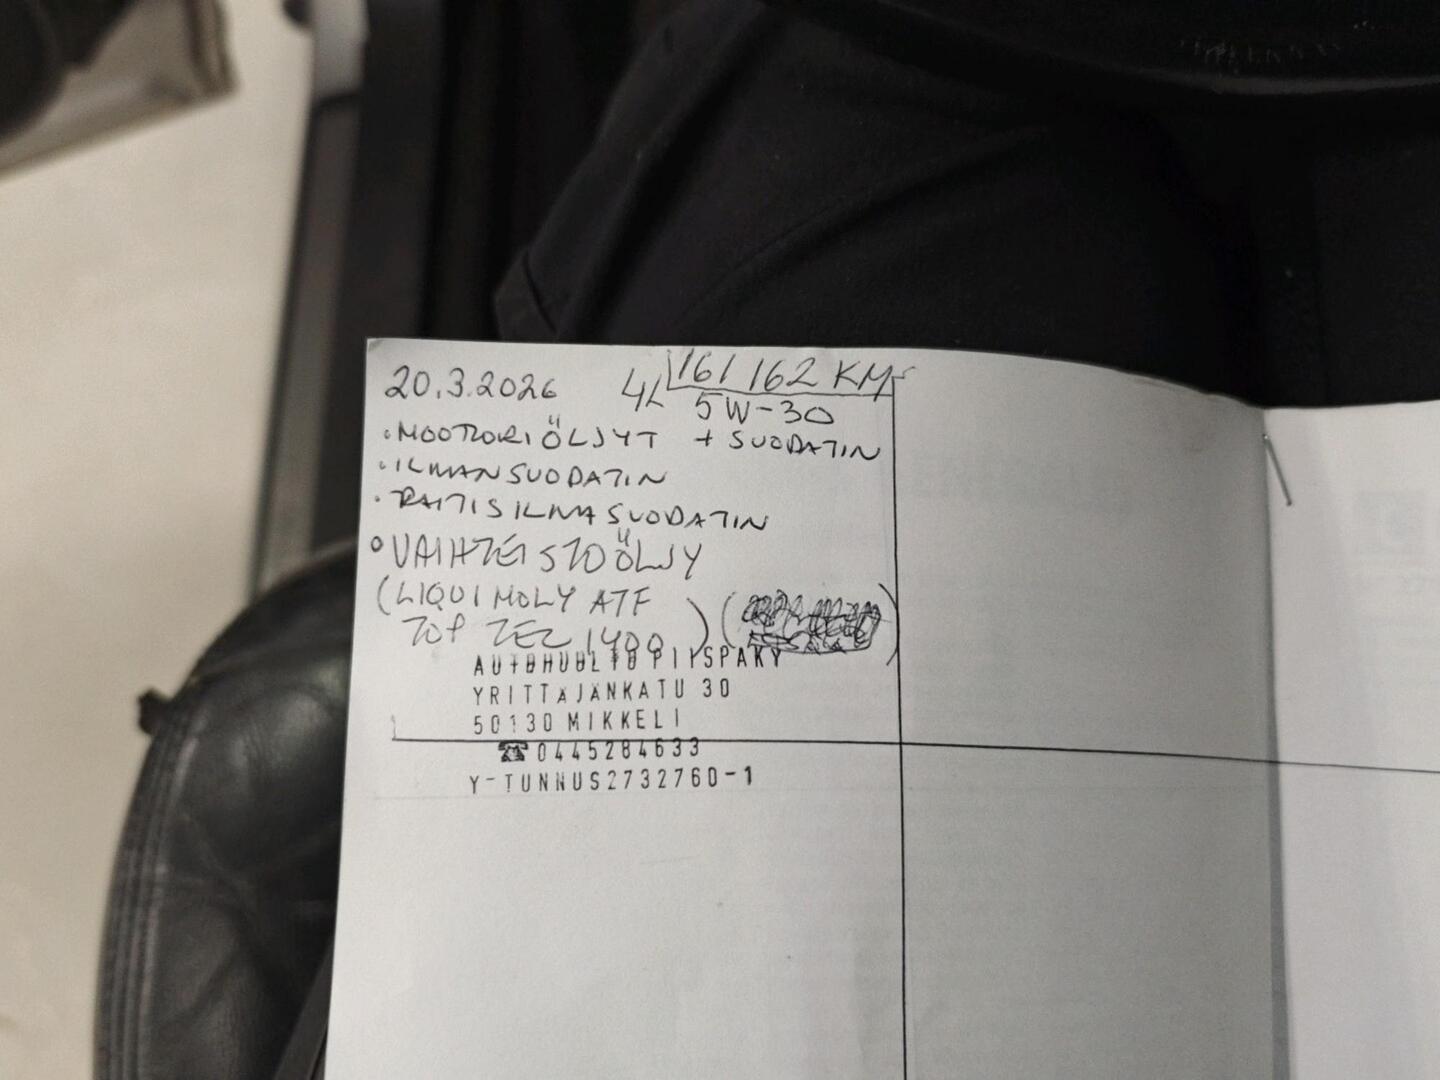 20.3.2026 4L 161 162 KM
5W-30
• MOOTTORIÖLJYT + SUODATIN
• ILMANSUODATIN
• RAITISILMASUODATIN
• VAIHTEISTOÖLJY
(LIQUI MOLY ATF
TOP TEC 1400)
AUTOHUOLTO PIISPAKY
YRITTÄJÄNKATU 30
50130 MIKKELI
☎ 0445284633
Y-TUNNUS2732760-1